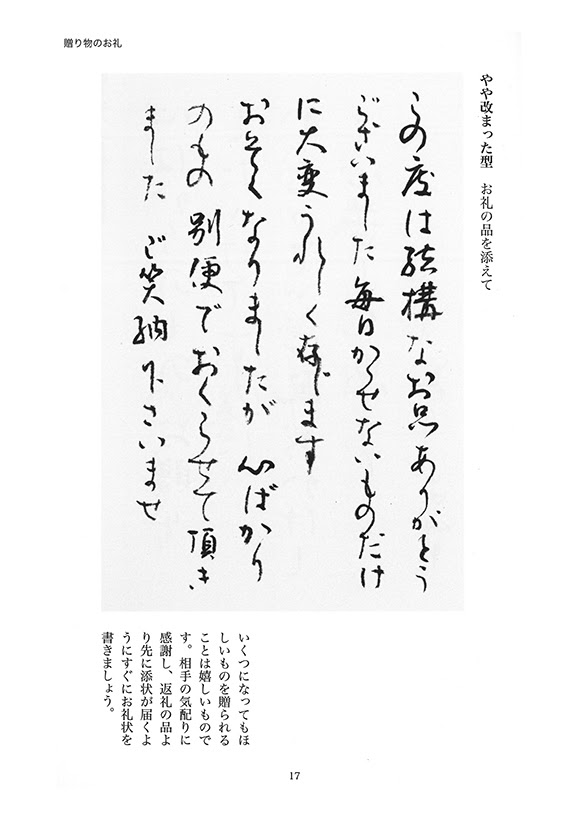 贈り物のお礼
やや改まった型　お礼の品を添えて
この度は結構なお品ありがとう
ございました毎日かゝせないものだけ
に大変うれしく存じます
おそくなりましたが　心ばかり
のもの　別便でおくらせて頂き
ました　ご笑納下さいませ
いくつになってもほ
しいものを贈られる
ことは嬉しいもので
す。相手の気配りに
感謝し、返礼の品よ
り先に添状が届くよ
うにすぐにお礼状を
書きましょう。
17